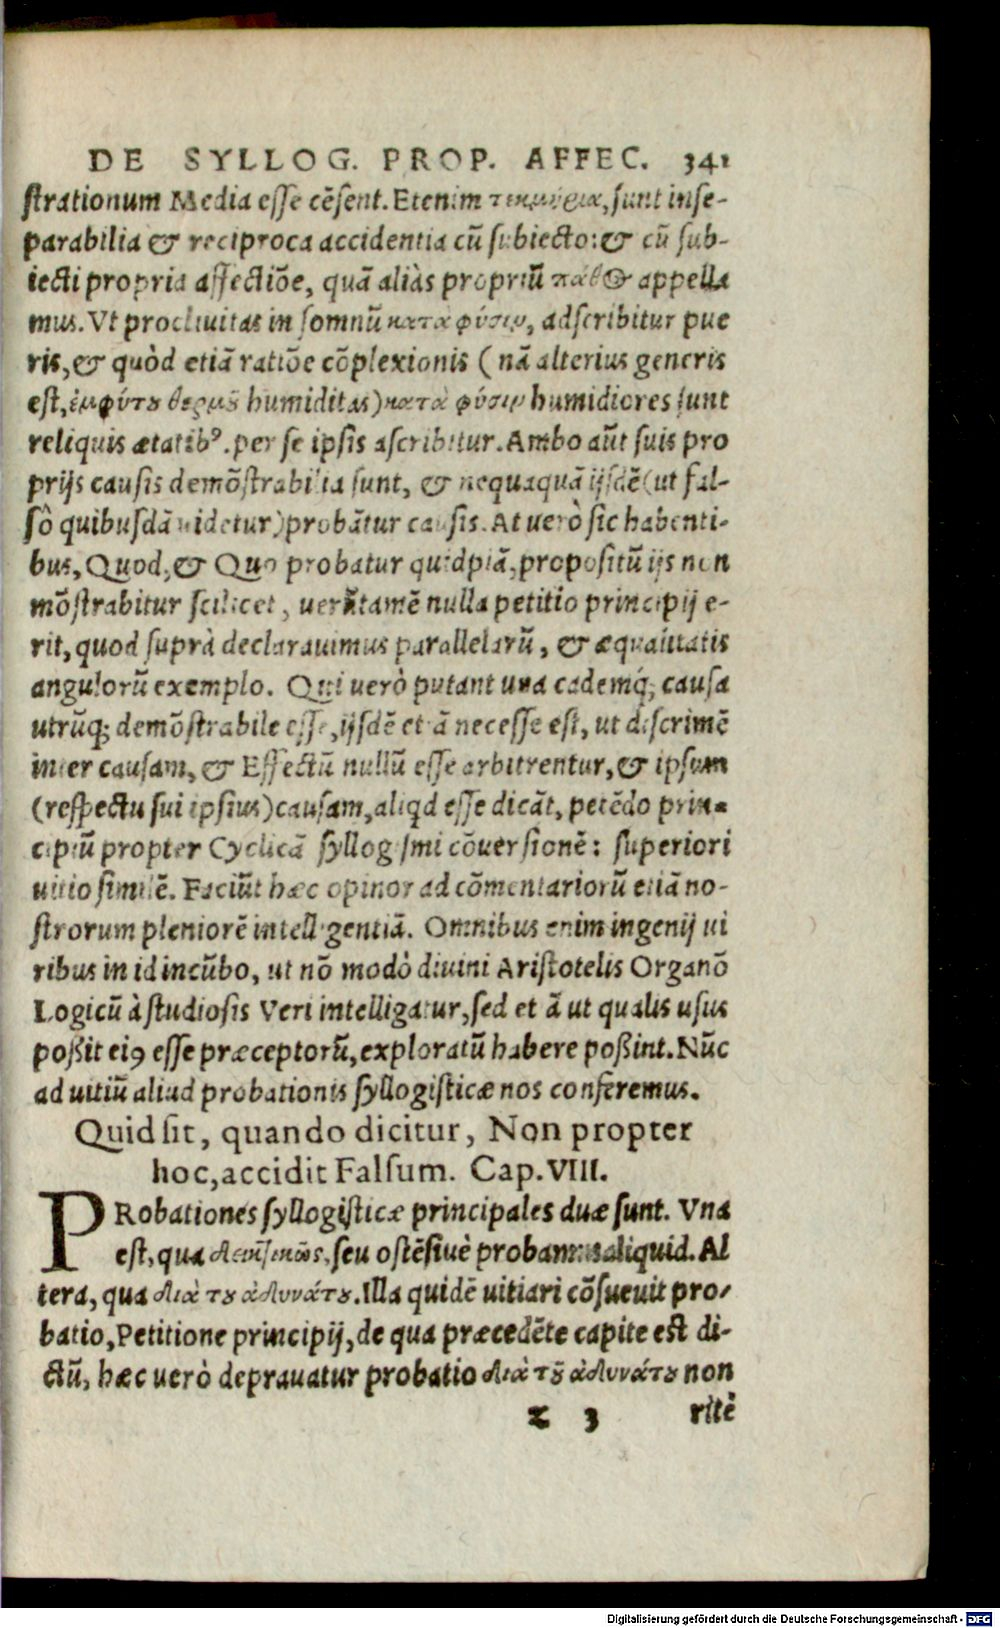 DE SYLLOG. PROP. AFFEC. 341
strationum Media esse cẽsent. Etenim τεκμήρια, sunt inse-
parabilia & reciproca accidentia cũ subiecto: & cũ sub-
iecti propria affectiõe, quã aliàs propriũ πάθος appella
mus. Vt procliuitas in somnũ κατὰ φύσιν, adscribitur pue
ris, & quòd etiã ratiõe cõplexionis (nã alterius generis
est, ἐμφύτου θερμοῦ humiditas) κατὰ φύσιν humidiores sunt
reliquis ætatibꝰ. per se ipsis ascribitur. Ambo aũt suis pro
prijs causis demõstrabilia sunt, & nequaquã ijsdẽ (ut fal-
sò quibusdã uidetur) probãtur causis. At uerò sic habenti-
bus, Quod, & Quo probatur quidpiã, propositũ ijs non
mõstrabitur scilicet, uerũtamẽ nulla petitio principij e-
rit, quod suprà declarauimus parallelarũ, & æqualitatis
angulorũ exemplo. Qui uerò putant una eademq́; causa
utrũq; demõstrabile esse, ijsdẽ etiã necesse est, ut discrimẽ
inter causam, & Effectũ nullũ esse arbitrentur, & ipsum
(respectu sui ipsius) causam, aliqd esse dicãt, petẽdo prin-
cipiũ propter Cyclicã syllogismi cõuersionẽ: superiori
uitio similẽ. Faciũt hæc opinor ad cõmentariorũ etiã no-
strorum pleniorẽ intelligentiã. Omnibus enim ingenij ui
ribus in id incũbo, ut nõ modò diuini Aristotelis Organõ
Logicũ à studiosis Veri intelligatur, sed etiã ut qualis usus
poßit eiꝰ esse præceptorũ, exploratũ habere poßint. Nũc
ad uitiũ aliud probationis syllogisticæ nos conferemus.
Quid sit, quando dicitur, Non propter
hoc, accidit Falsum. Cap. VIII.
PRobationes syllogisticæ principales duæ sunt. Vna
est, qua δεικτικῶς, seu ostẽsiuè probamus aliquid. Al
tera, qua διὰ τοῦ ἀδυνάτου. Illa quidẽ uitiari cõsueuit pro-
batio, Petitione principij, de qua præcedẽte capite est di-
ctũ, hæc uerò deprauatur probatio διὰ τοῦ ἀδυνάτου non
z 3 ritè
Digitalisierung gefördert durch die Deutsche Forschungsgemeinschaft - DFG